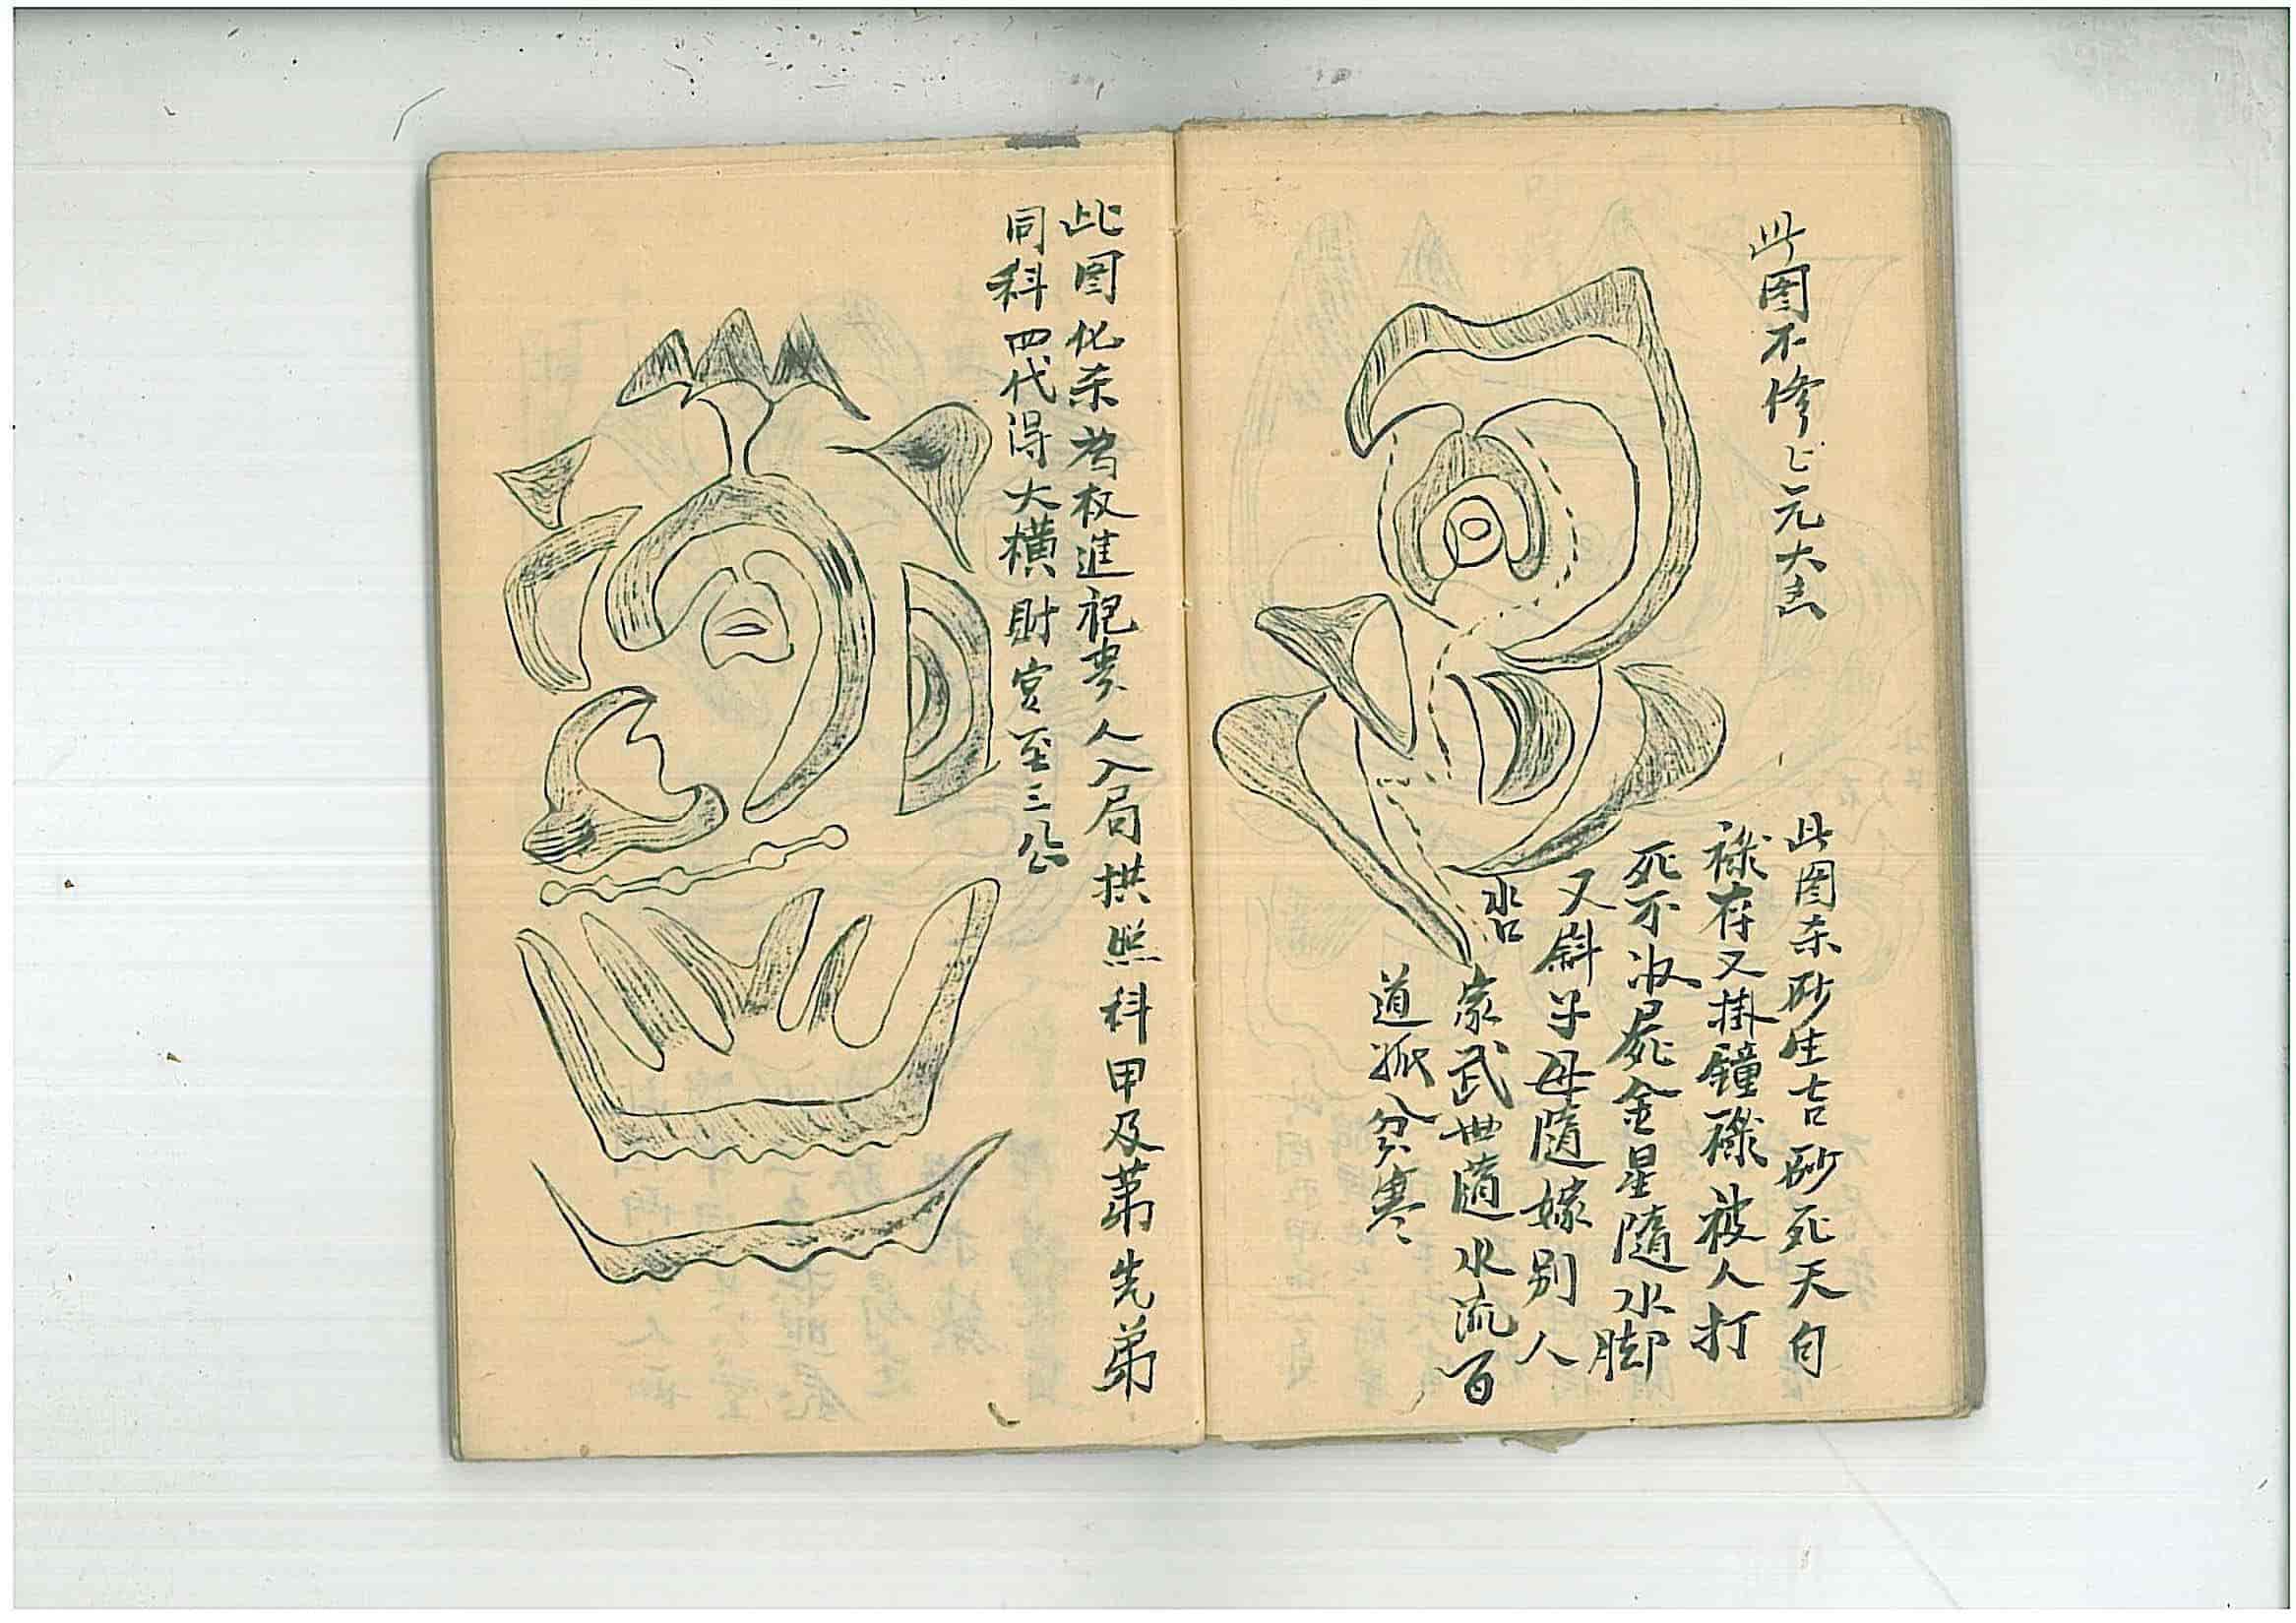 此图不修上元大吉
此图杀砂生吉砂死天自
禄存又掛鐘禄被人打
死不收屍金星隨水脚
又斜子母隨嫁别人
家武世隨水流百
道孤贫寒
水口
此图化杀为权進祀贵人入局拱照科甲及第先弟
同科四代得大横財官至三公